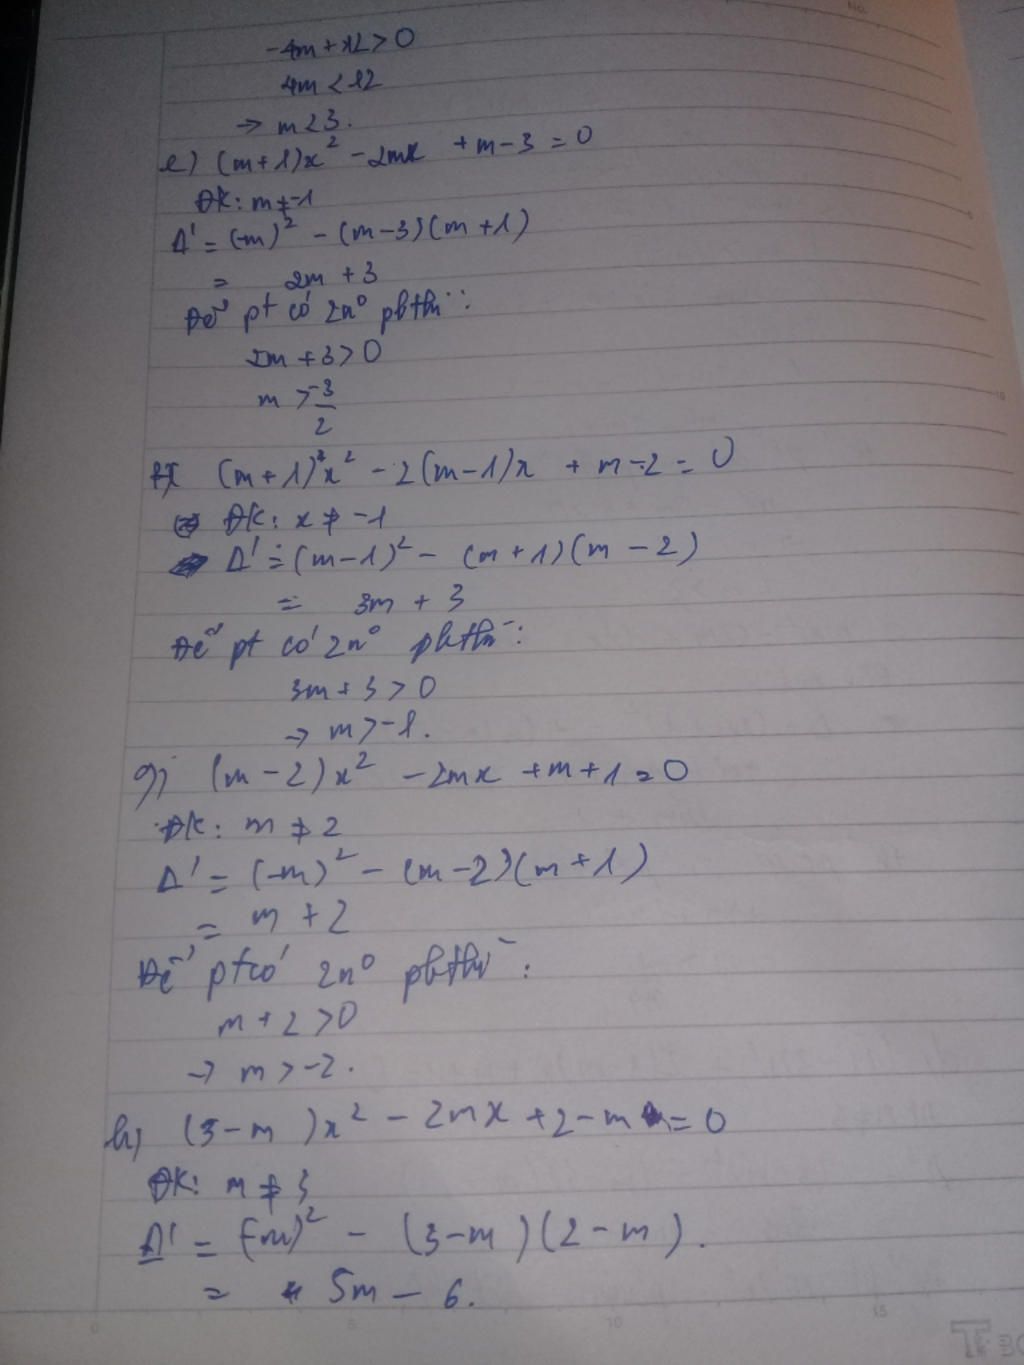 -4m + 12 > 0
4m < 12
→ m < 3.
e) (m+1)x² - 2mx + m - 3 = 0
ĐK: m ≠ -1
Δ' = (-m)² - (m-3)(m+1)
= 2m + 3
Để pt có 2n⁰ pbthì:
2m + 3 > 0
m > -3/2
(m+1)x² - 2(m-1)x + m - 2 = 0
ĐK: x ≠ -1
Δ' = (m-1)² - (m+1)(m-2)
= 3m + 3
Để pt có 2n⁰ pbthì:
3m + 3 > 0
→ m > -1.
g) (m-2)x² - 2mx + m + 1 = 0
ĐK: m ≠ 2
Δ' = (-m)² - (m-2)(m+1)
= m + 2
Để pt có 2n⁰ pbthì:
m + 2 > 0
→ m > -2.
h) (3-m)x² - 2mx + 2 - m = 0
ĐK: m ≠ 3
Δ' = (-m)² - (3-m)(2-m).
= 5m - 6.